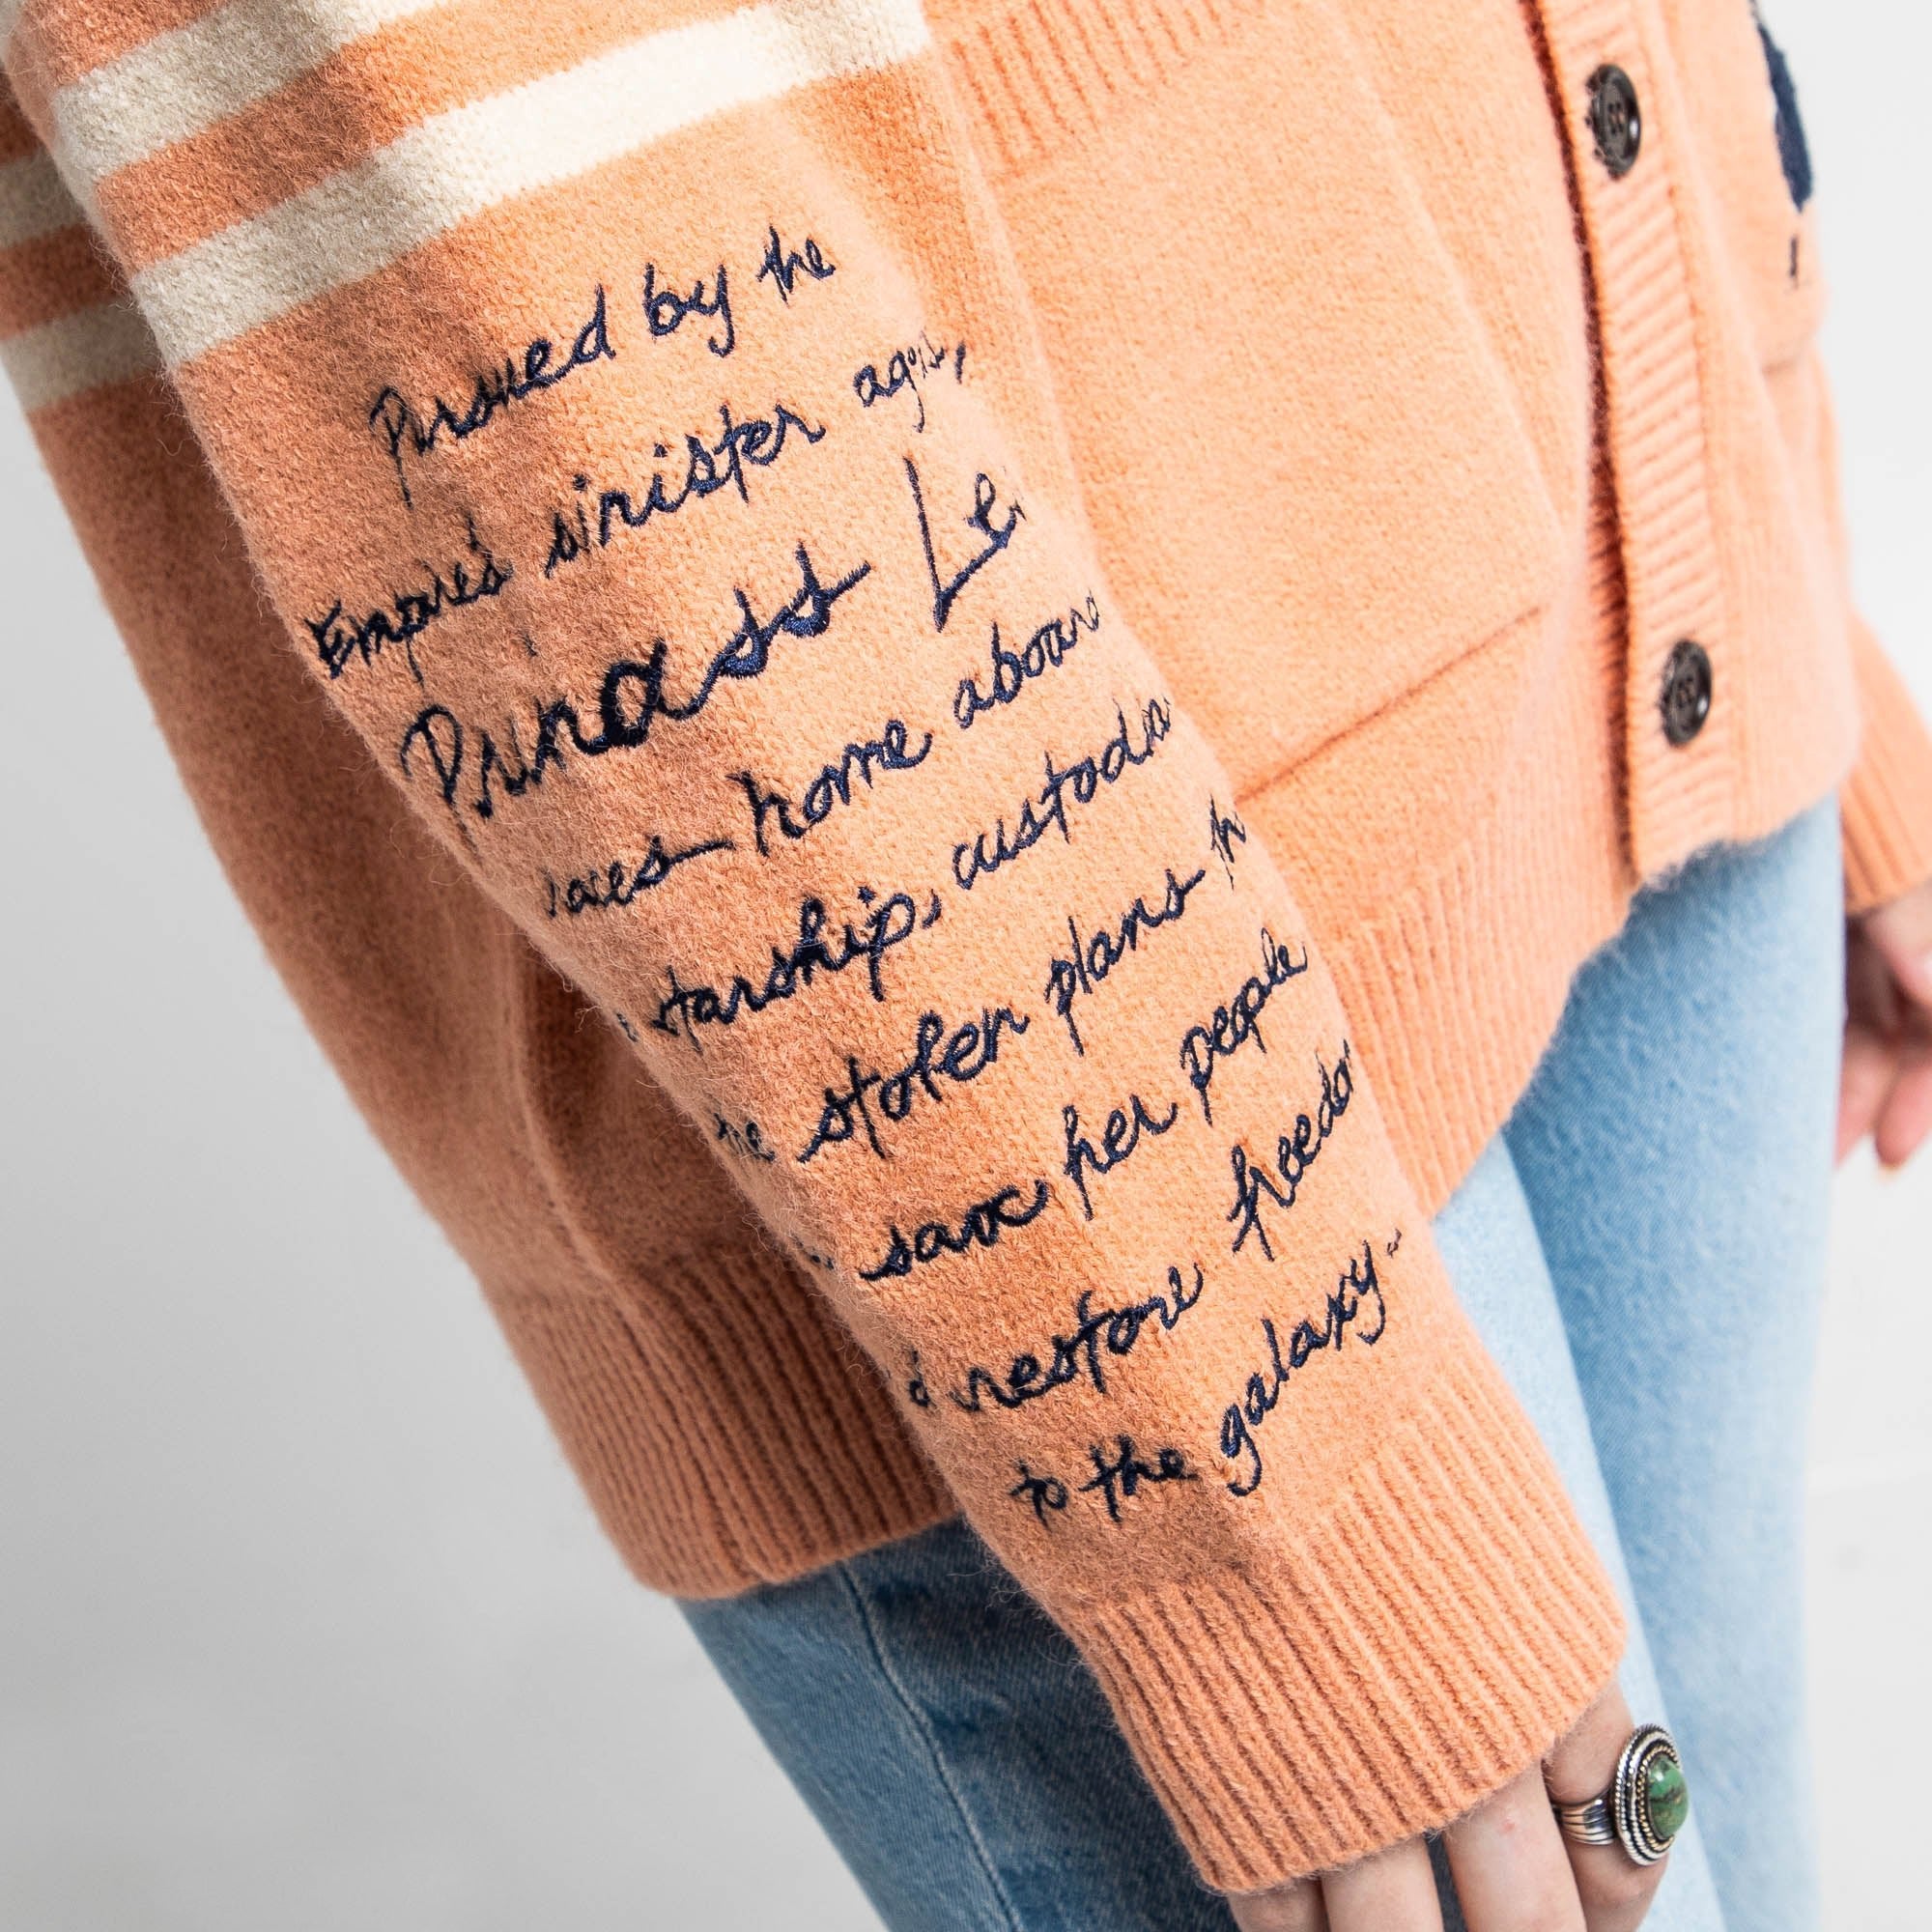 Pursued by the
Empire's sinister
Princess Le
races home aboar
starship, custodia
the stolen plans th
save her people
d restore freedo
to the galaxy.